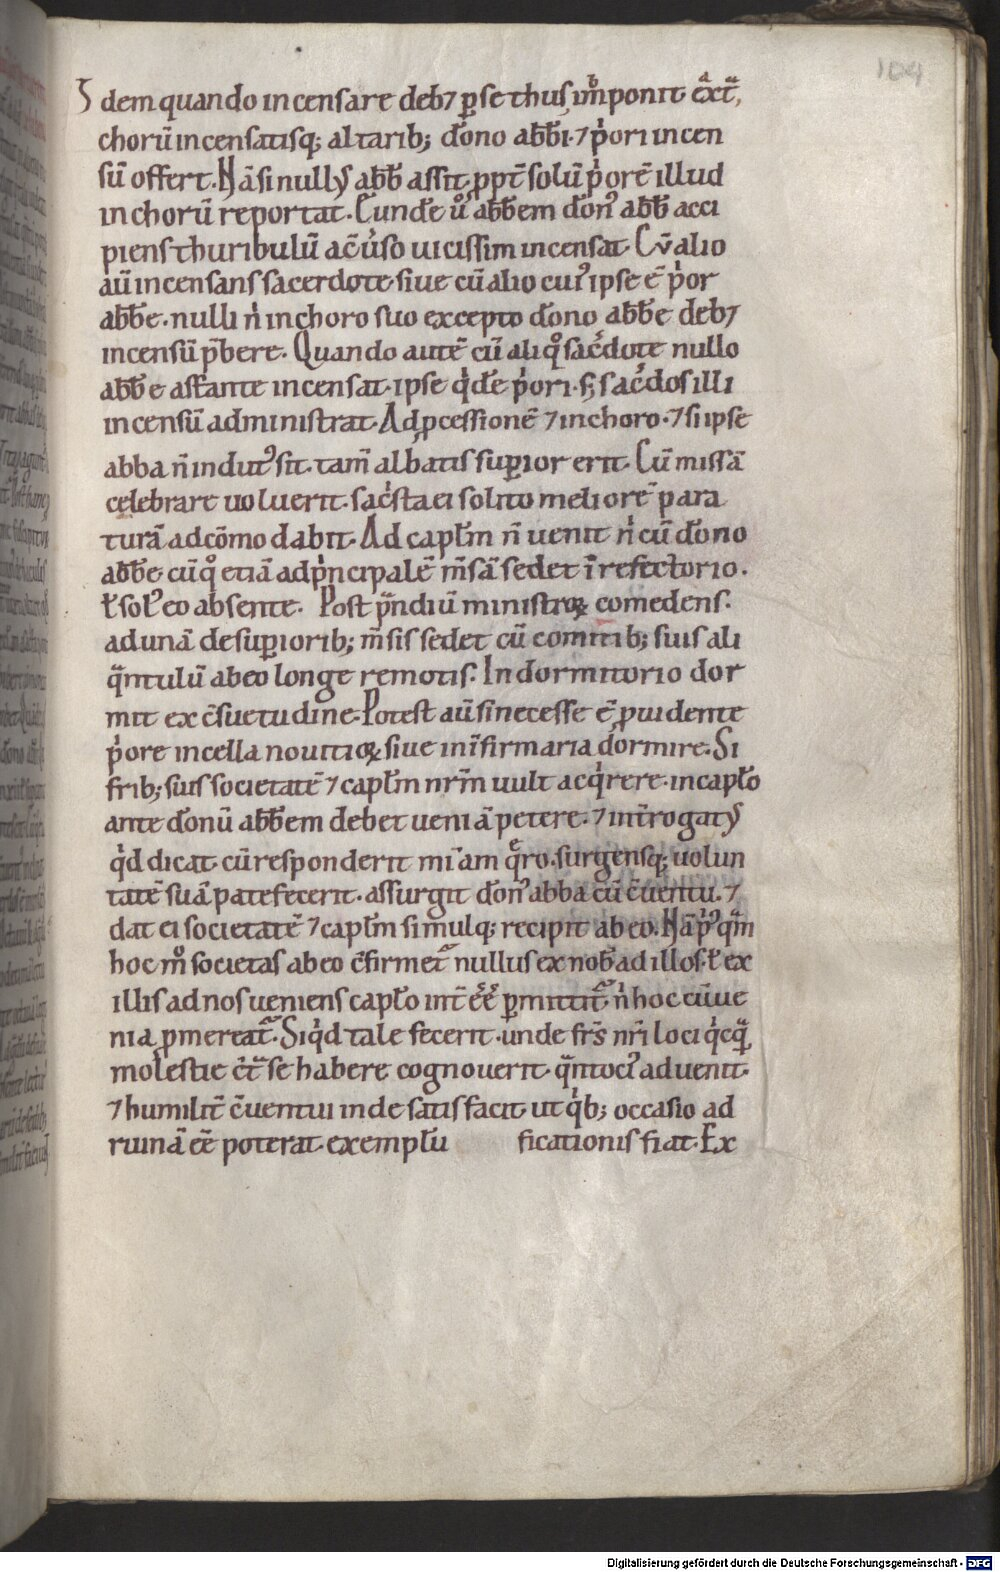 104
Idem quando incensare deb⁊ ꝑ se thus imponit ext̄,
chorū incensatisq; altarib; dōno abb̄i ⁊ p̓ori incen
sū offert. Nā si nullꝰ abb̄ assit ꝓpt̄ solū p̓orē illud
in chorū reportat. Eunde ū abb̄em don̄ꝰ abb̄ acci
piens thuribulū ac ūso uicissim incensat. Cū alio
aū incensans sacerdote siue cū alio cuiꝰ ipse ē p̓or
abb̄e. nulli n̓ in choro suo excepto dōno abb̄e deb⁊
incensū p̄bere. Quando autē cū aliqͦ sac̄dote nullo
abb̄e astante incensat. ipse q̓de p̓ori. s; sac̄dos illi
incensū administrat. Ad ꝓcessionē ⁊ in choro. ⁊ si ipse
abba n̄ indutꝰ sit. tam̄ albatis suꝑior erit. Cū missā
celebrare uoluerit. sac̓sta ei solito meliorē para
turā adcōmodabit. Ad capl̄m n̄ uenit n̓ cū dōno
abb̄e cū qͦ etiā ad p̓ncipalē m̄sā sedet ī refectorio.
ł solꝰ eo absente. Post p̄ndiū ministroꝝ comedens.
ad unā de suꝑiorib; m̄sis sedet cū comitib; suis ali
qᵃntulū ab eo longe remotis. In dormitorio dor
mit ex c̄suetudine. Potest aū si necesse ē ꝓuidente
p̓ore in cella nouitioꝝ siue in īfirmaria dormire. Si
frib; suis societatē ⁊ capl̄m nr̄m uult acq̓rere. in capłō
ante donū abb̄em debet ueniā petere. ⁊ int̄rogatꝰ
q̓d dicat. cū responderit mīam qͤro. surgensq; uolun
tatē suā patefecerit. assurgit don̄ꝰ abba cū c̄uentu. ⁊
dat ei societatē ⁊ capl̄m simulq; recipit ab eo. Nā pͥꝰ qᵃm
hoc mͦ societas ab eo c̄firmet᷑ nullus ex nob̄ ad illos. ł ex
illis ad nos ueniens capłō int̄ēē ꝑmittit᷑ n̓ hoc cū ue
nia ꝓmereat᷑. Siq̓d tale fecerit. unde fr̄s nr̄i loci q̓cqᵃ
molestie c̄tᵃ se habere cognouerit. qᵃntociꝰ aduenit.
⁊ humilit̄ c̄uentui inde satisfacit. ut q̓b; occasio ad
ruinā ēē poterat. exemplū ficationis fiat. Ex
Digitalisierung gefördert durch die Deutsche Forschungsgemeinschaft - DFG